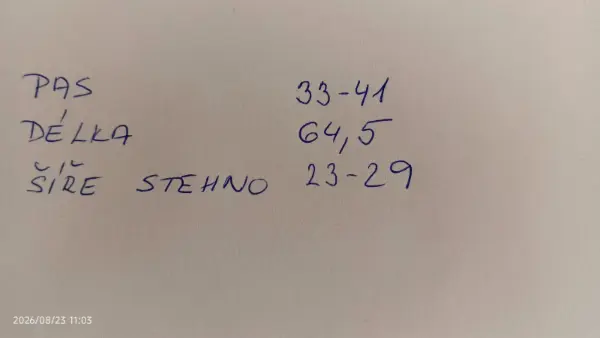 PAS 33-41
DÉLKA 64,5
ŠÍŘE STEHNO 23-29
2026/08/23 11:03